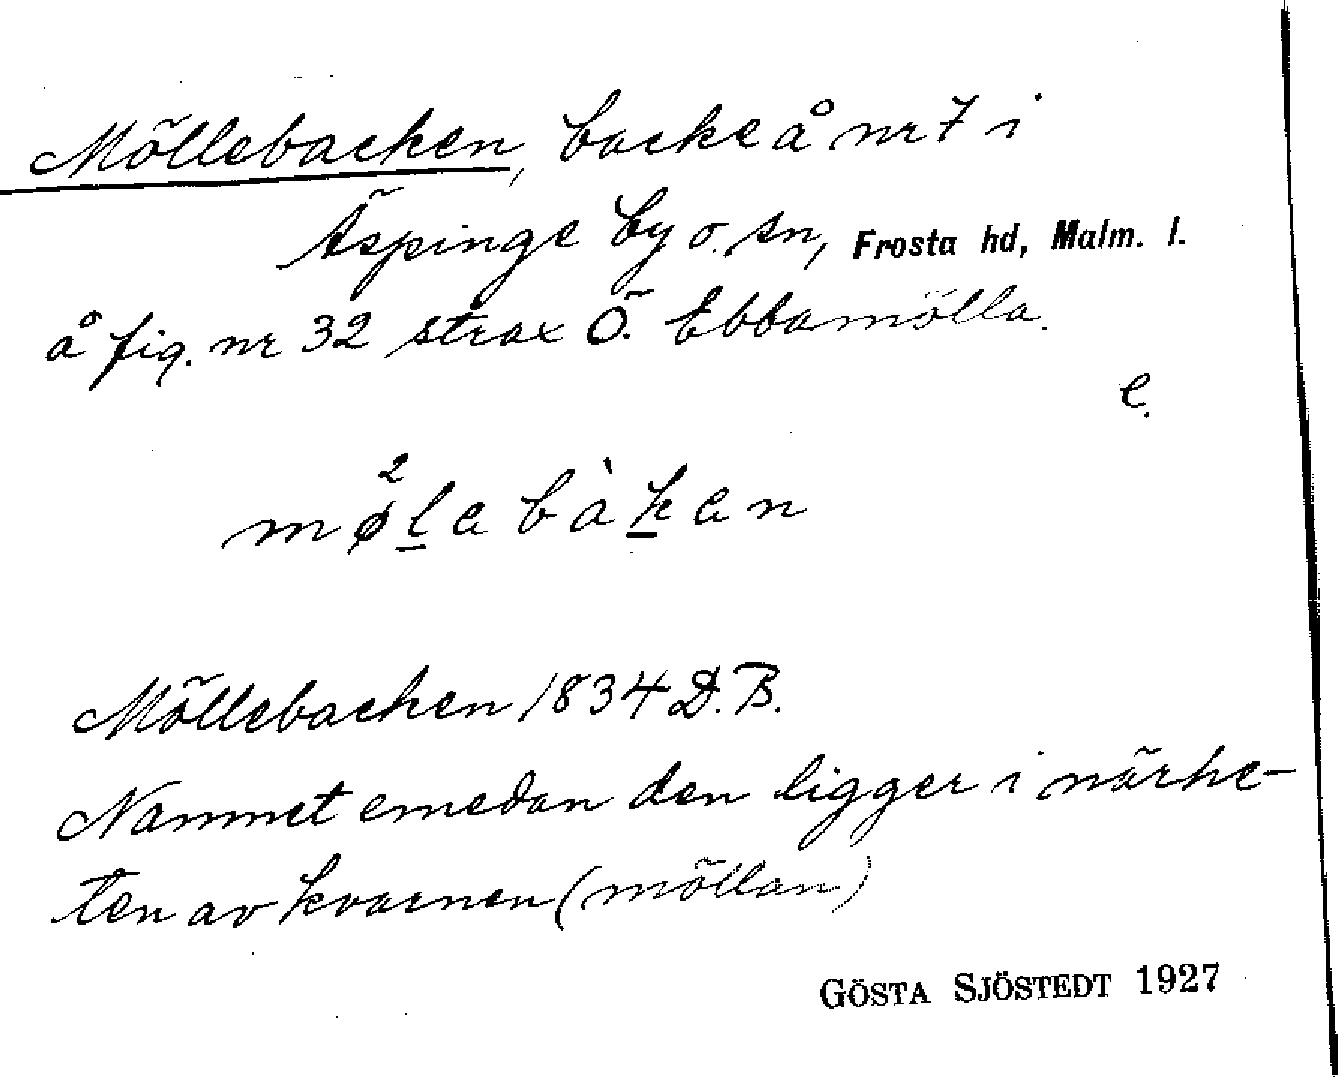 Möllebacken, backe å nr 7 i
Äspinge by o. sn, Frosta hd, Malm. l.
å fig. nr 32 strax Ö. Ebbamölla.
e.
mø²lebàken
Möllebacken 1834 D.B.
Namnet emedan den ligger i närhe-
ten av kvarnen (möllan)
GÖSTA SJÖSTEDT 1927